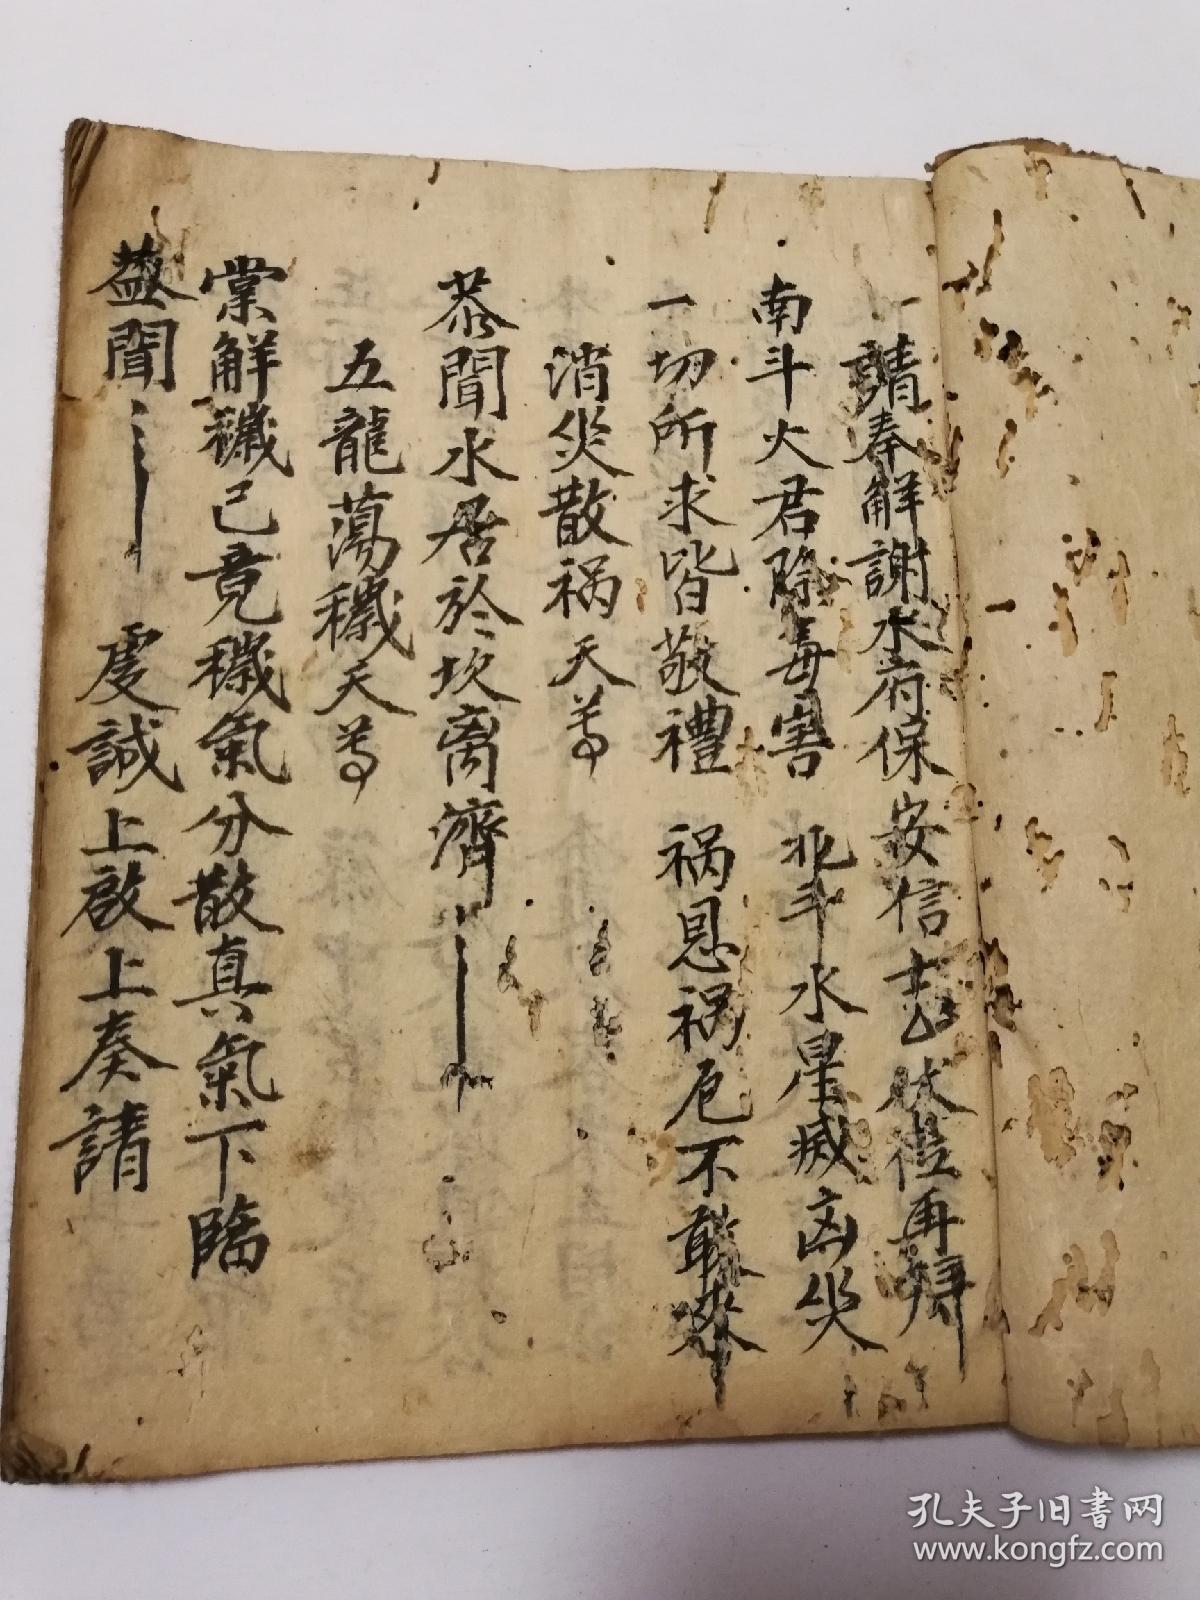 一請奉解謝水府保安信士 禮再拜
南斗火君除毒害 北斗水星滅凶災
一切所求皆敬禮 祸祸厄不敢來
消災散祸天尊
恭聞水居於坎离濟
五龍蕩穢天尊
棠解穢已竟穢氣分散真氣下臨
蓋聞 虔誠上啟上奏請
孔夫子旧书网
www.kongfz.com